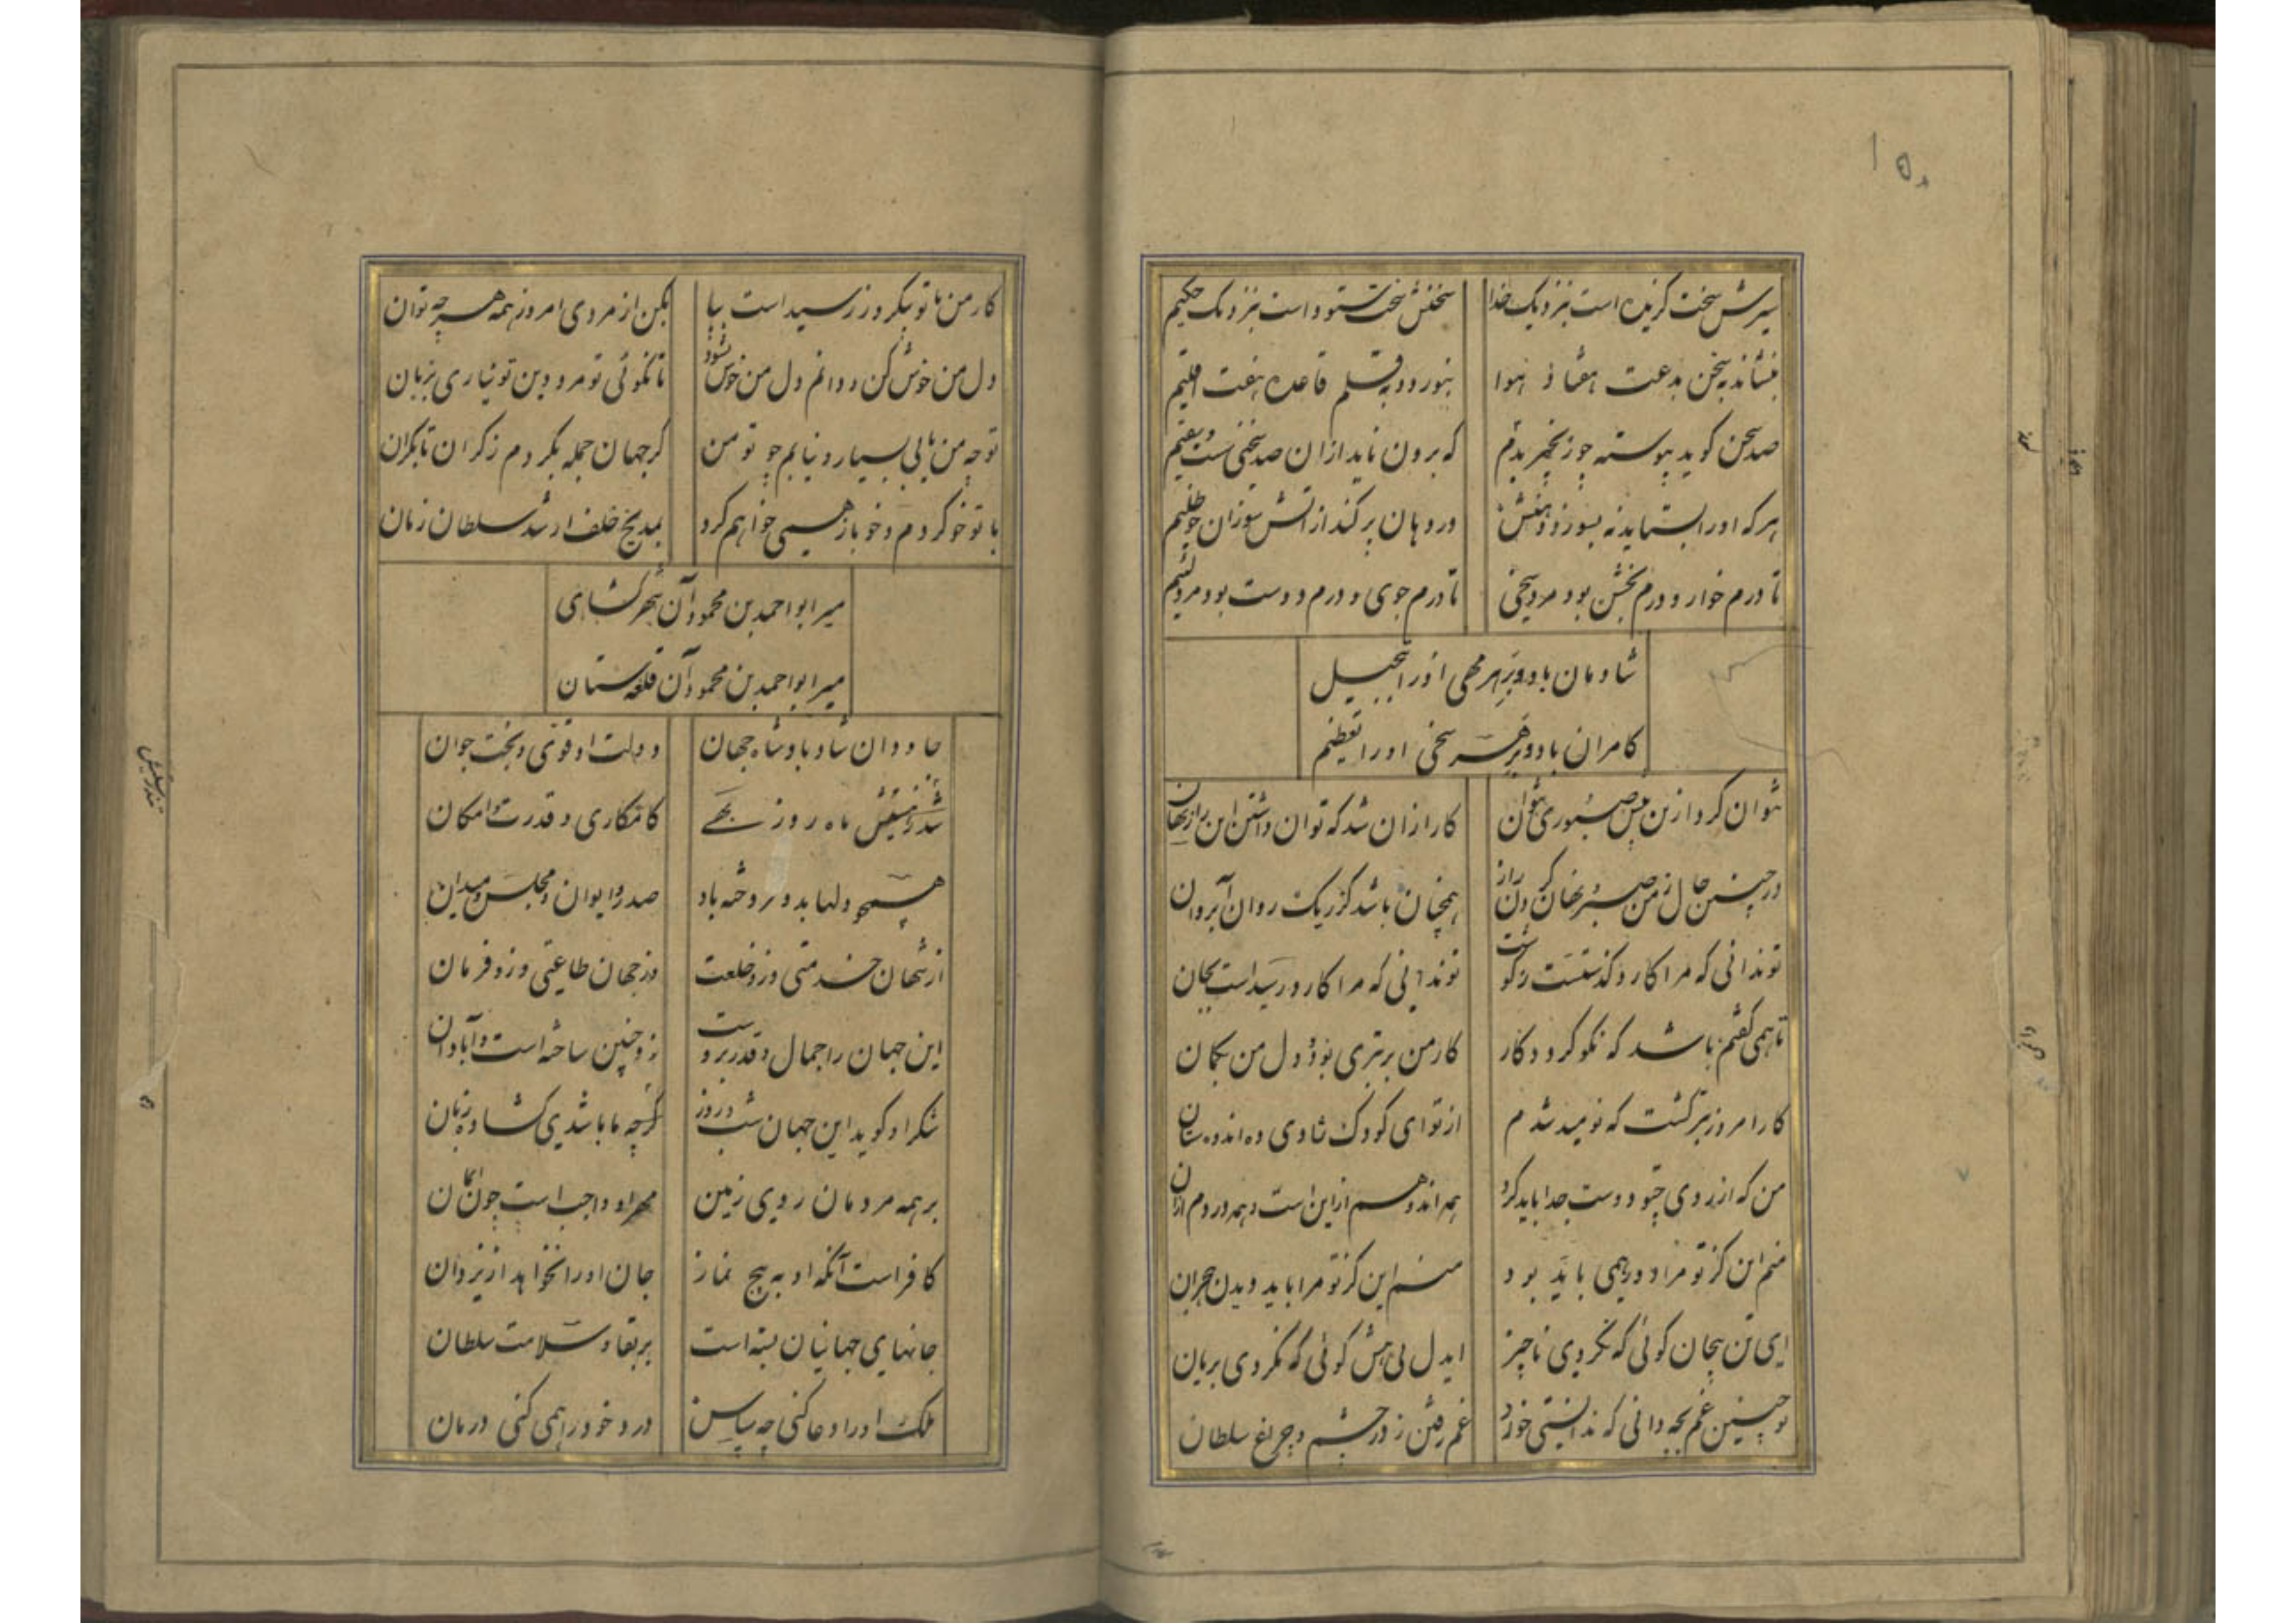 ۱۵۰
سیرتش سخت گزیده است بنزدیک خدا سخنش سخت ستوداست بنزدیک حکیم
بنشاند بسخن بدعت هفتاد هوا بنوردد بقلم قاعده هفت اقلیم
صد سخن گوید پیوسته چو زنجیر بهم که برون ناید ازان صد سخنی سست و سقیم
هرکه اورا بستاید نه بسوزد دهنش ور دهان پر کند از آتش سوزان چو ظلیم
تا درم خوار و درم بخش بود مرد سخی تا درم جوی و درم دوست بود مرد لئیم
شادمان باد و بر هر مهی اورا تبجیل
کامران باد و بر هر سخنی اورا تعظیم
نتوان کرد ازین پیش صبوری نتوان کار ازان شد که توان داشتن این راز نهان
در چنین حال ز من صبر نهان کردن راز همچنان باشد کز ریک روان آب روان
تو ندانی که مرا کارد گذشتست ز گوشت تو ندانی که مرا کارد رسیداست بجان
تا همی گفتم باشد که نکو گردد کار کار من برتری بود و دل من بگمان
کار امروز بتر گشت که نومید شدم از تو ای کودک شادی ده اندوه ستان
من که از روی چو تو دوست جدا باید کرد همه اندوهم ازین است و همه دردم ازان
منم این کز تو مرا دور همی باید بود منم این کز تو مرا باید دیدن هجران
ای تن بیجان گوئی که نگردی ناچیز ایدل بی هش گوئی که نگردی بریان
تو چنین غم بچه دانی که ندانستی خورد غم رفتن ز در چشم و چراغ سلطان
کار من با تو بیکروز رسیداست بیا بکن از مردی امروز همه هرچه توان
دل من خوش کن و دانم دل من خوش نشود تا نگوئی تو مر و دین تو نیاری بزبان
تو چه من یابی بسیار و نیابم چو تو من گر جهان جمله بگردم ز کران تا بکران
با تو خو کردم و خو باز همی خواهم کرد بمدیح خلف ارشد سلطان زمان
میر ابو احمد بن محمود آن شهر گشای
میر ابو احمد بن محمود آن قلعه ستان
جاودان شاد باد شاه جهان دولت او قوی و بخت جوان
ماه روز بهی کامکاری و قدرت و امکان
همچو دلها بدو فروخته باد صدر و ایوان و مجلس و میدان
از شهان خدمتی وزو خلعت وز جهان طاعتی وزو فرمان
این جهان را جمال و قدر بدوست زو چنین ساخته است و آبادان
شکر او گوید این جهان شب و روز گرچه ما باشدی گشاده زبان
بر همه مردمان روی زمین مهر او واجب است چون ایمان
کافر است آنکه او به پنج نماز جان اورا نخواهد از یزدان
جانهای جهانیان بسته است بر بقا و سلامت سلطان
ملک اورا دعا کنی چه سپاس درد خود را همی کنی درمان